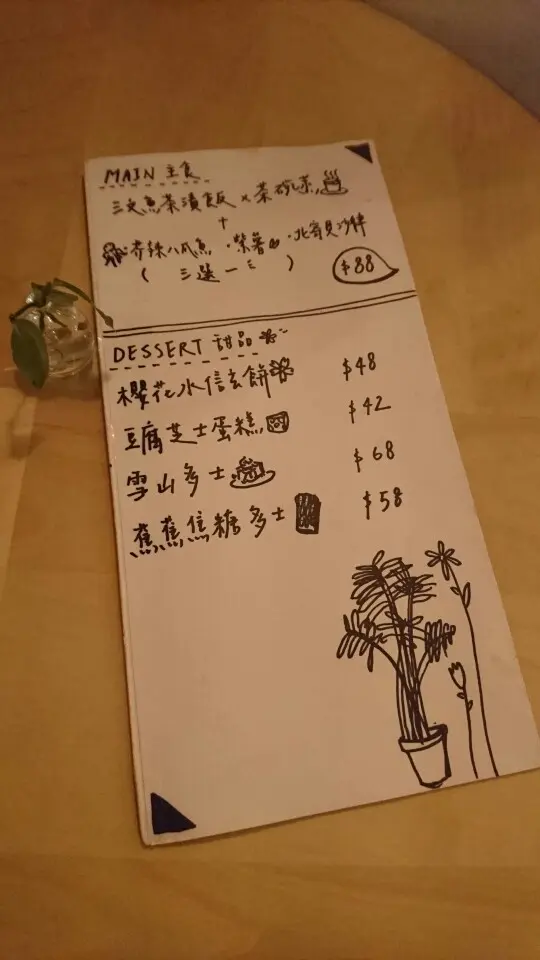 MAIN 主食
三文魚茶漬飯 x 茶碗蒸
+
芥辣八爪魚 · 紫薯 · 北寄貝沙律
( 三選一 )
$88
DESSERT 甜品
櫻花水信玄餅 $48
豆腐芝士蛋糕 $42
雪山多士 $68
蕉蕉焦糖多士 $58